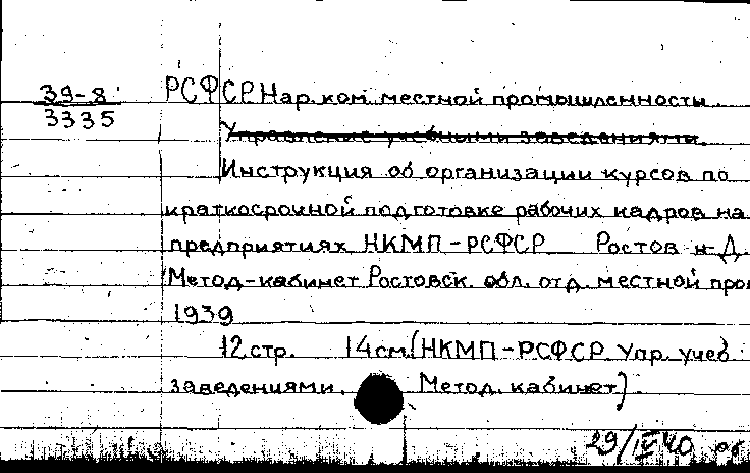 39-8
3335
РСФСР Нар. ком. местной промышленности
Управление учебными заведениями.
Инструкция об организации курсов по
краткосрочной подготовке рабочих кадров на
предприятиях НКМП-РСФСР Ростов н-Д.
Метод-кабинет Ростовск. обл. отд. местной про
1939
12 стр. 14 см. (НКМП-РСФСР Упр. учеб
заведениями. Метод. кабинет).
29/IV 40